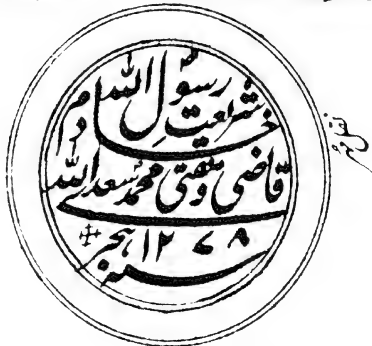 نقل مهر
خادم شریعت رسول الله
قاضی و مفتی محمد سعد الله
سنه ۱۲۷۸ هجری